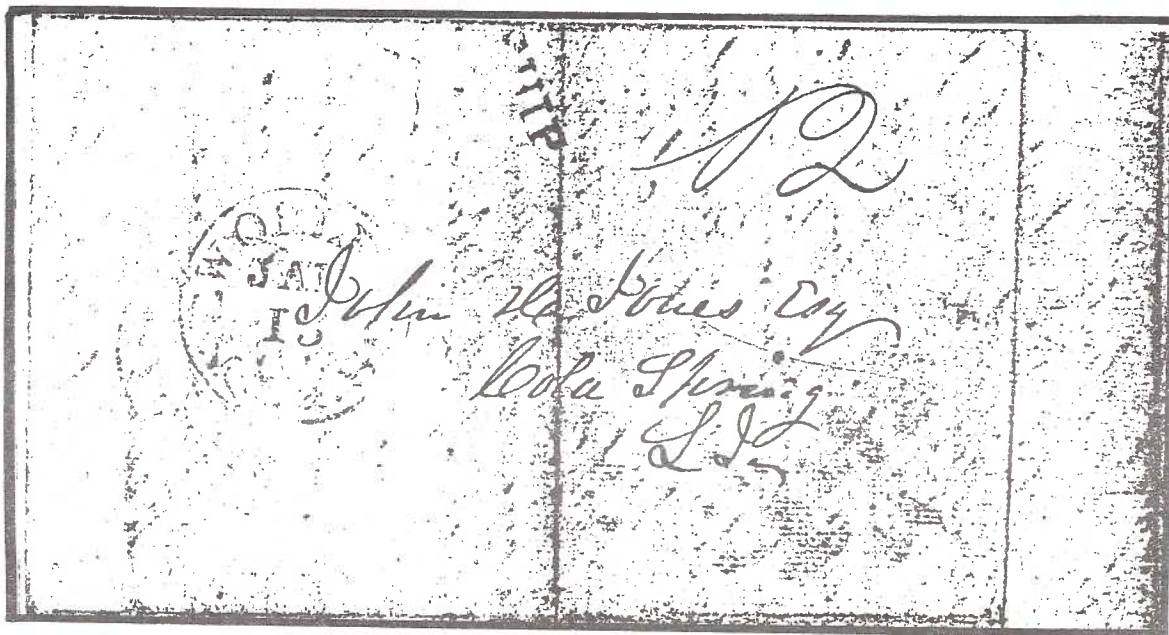 SHIP
12
JAN
John H. Jones Esq
Cold Spring
L I